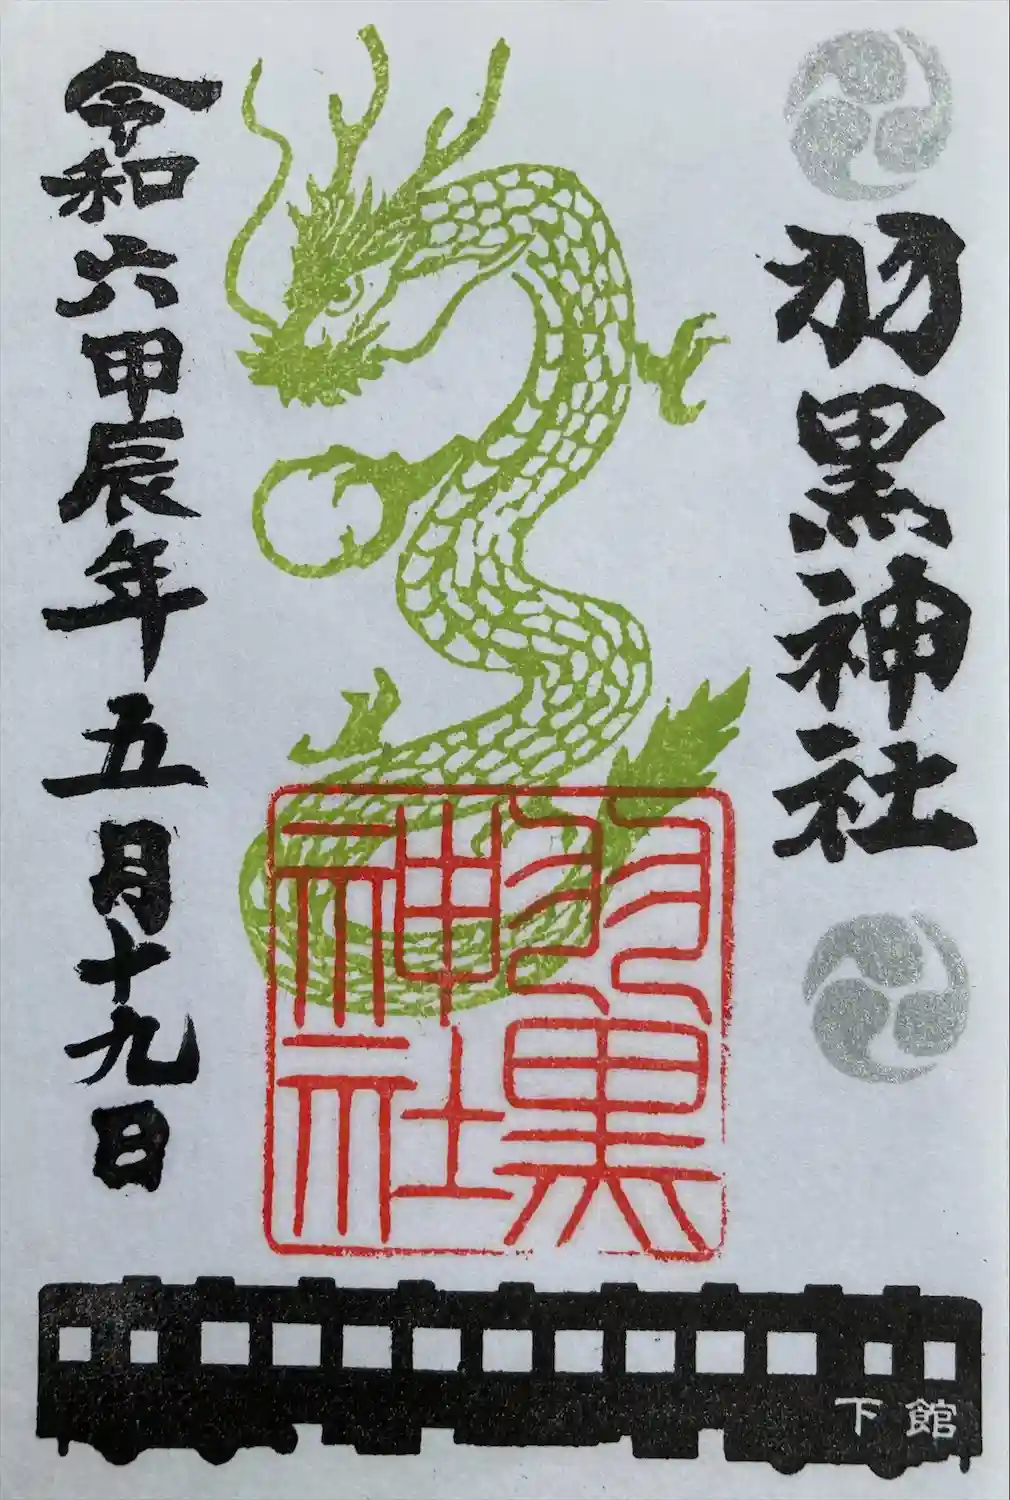 羽黒神社
羽黒
神社
令和六甲辰年五月十九日
下館